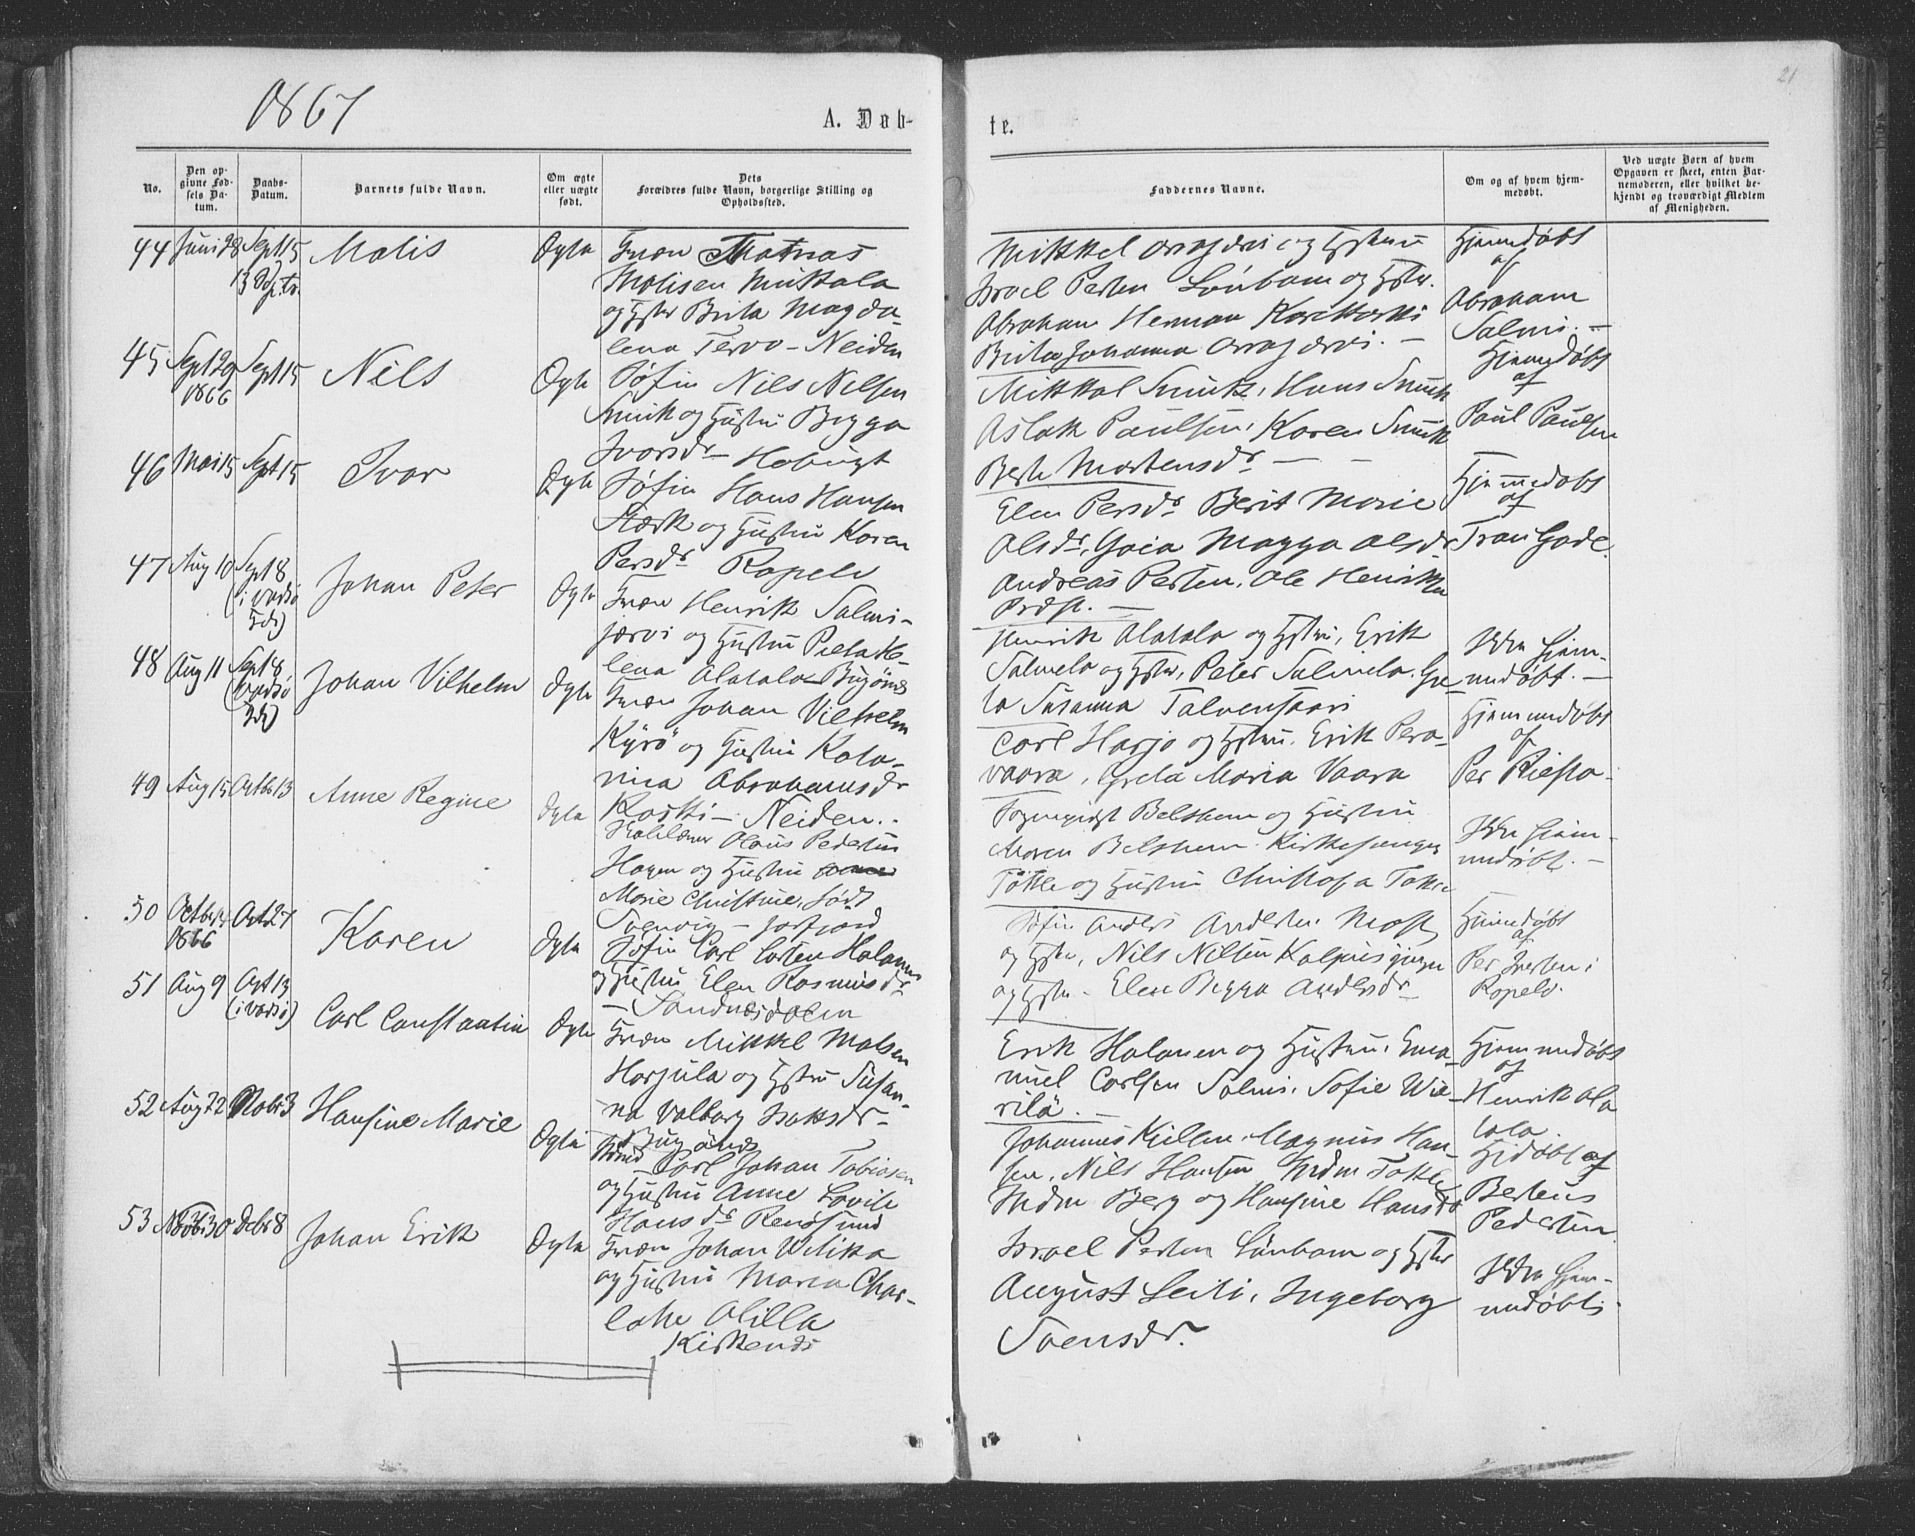 1867
A. Døb-
te.
21
No.
Den op-
givne Fød-
sels Da-
tum.
Daabs-
Datum.
Barnets fulde Navn.
Om ægte
eller uægte
født.
Dets
Forældres fulde Navn, borgerlige Stilling og
Opholdssted.
Faddernes Navne.
Om og af hvem hjem-
medøbt.
Ved uægte Børn af hvem
Opgaven er skeet, enten Bar-
nemoderen, eller hvilket be-
kjendt og troværdigt Medlem
af Menigheden.
44 Juni 28 Sept 15
Malis
Ægte
Kvæn Mathias
Matisen Mikkala
og Hstr Brita Magda-
lena Tervo - Neiden
Mikkel og Hstru
Israel Persen Lönbom og Hstr.
Abraham Herman
Brita Johanna
Hjemmedøbt
af
Abraham
Salmi. -
45 Sept 29 Sept 15
1866
Nils
Ægte
Søfin Nils Nilsen
Smuk og Hustru Bigga
Ivarsdr - Hobugt
Mikkel Smuk, Hans Smuk
Aslak Paulsen, Karen Smuk
Berte Mortensdr -
Hjemmedøbt
af
Paul Paulsen
46 Mai 15 Sept 15
Ivar
Ægte
Søfin Hans Hansen
Stærk og Hustru Karen
Persdr Ropelv
Elen Persdr Berit Marie
Olsdr, Gaia Magga Olsdr
Andreas Persen, Ole Henriksen
Hjemmedøbt
af
47 Aug 10 Sept 8
(i Vadsø
Johan Peter
Ægte
Kvæn Henrik Salmi-
järvi og Hustru Pieta He-
lena Alatalo Bugönes
Henrik Alatalo og Hstru, Erik
Salmela og Hstr, Peter Salmela. Gre-
ta Susanna
Ikke hjem-
medøbt. -
48 Aug 11 Sept 8
(Vadsø
Johan Vilhelm
Ægte
Kvæn Johan Vilhelm
Kyrö og Hustru Kata-
rina Abrahamsdr
Koski - Neiden.
Carl Harjo og Hstru. Erik Pera-
vaara, Greta Maria Vaara
Hjemmedøbt
af
Per Riesto-
49 Aug 15 Octbr 13
Anne Regine
Ægte
Olaus Pedersen
Hagen og Hustru
Marie Christine, født
Svenvig - Jarfjord
Sogneprest Belsheim og Hustru
Maren Belsheim. Kirkesanger
og Hustru
Ikke hjem-
medøbt. -
50 Octbr 14 Oct 27
1866
Karen
Ægte
Søfin Carl Carlsen Halonen
og Hustru Elen Rasmusdr
- Sandnæsdalen
Søfin Anders Andersen
og Hstr, Nils Nilsen
og Hstr - Elen Bigga Andersdr -
Hjemmedøbt
af
Per Iversen i
Ropelv.
51 Aug 9 Oct 13
(i Vadsø)
Carl Constantin
Ægte
Kvæn Mikkel Matsen
Harjula og Hstru Susan-
na Valborg Isaksdr -
Bugönæs
Erik Halonen og Hustru. Ema-
nuel Carlsen Salmi. Sofie Wie-
rilä. -
Hjemmedøbt
af
Henrik Ala
talo.
52 Aug 22 Nobr 3
Hansine Marie
Ægte
Carl Johan Tobiasen
og Hustru Anne Lovise
Hansdr Renösund
Johannes Kjellsen. Magnus Han-
sen. Nils Hansen
Berg og Hansine Hansdr
Hjdøbt af
Berteus
Pedersen
53 Nobr 30 Debr 8
Johan Erik
Ægte
Kvæn Johan
og Hustru Maria Char-
lotte Olilla
Kirkenæs
Israel Persen Lönbom og Hstr
August Leili, Ingeborg
Svensdr.
Ikke hjem-
medøbt.